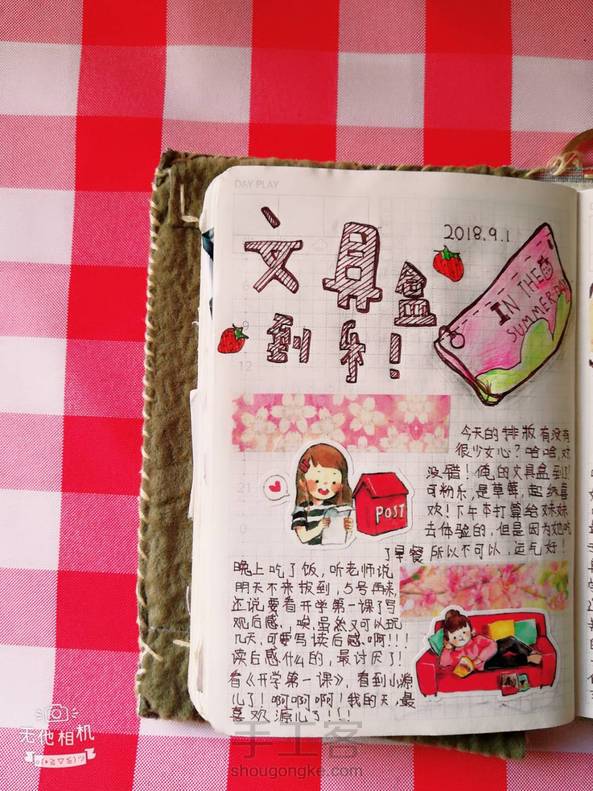 DAY PLAY
2018.9.1
文具盒
到乐！
IN THE
SUMMER
今天的排版有没有
很少女心？哈哈对
没错！俺的文具盒到
可粉乐，是草莓，超级喜
欢！下午本打算给妹妹
去体验的，但是因为她吃
了早餐 所以不可以，运气好！
POST
晚上吃了饭，听老师说
明天不来报到，5号再来，
还说要看开学第一课了写
观后感，唉，虽然又可以玩
几天，可要写读后感啊！！！
读后感什么的，最讨厌了！
看《开学第一课》，看到小源
儿了！啊啊啊啊！我的天，最
喜欢源儿了！！！
无他相机
手工客
shougongke.com